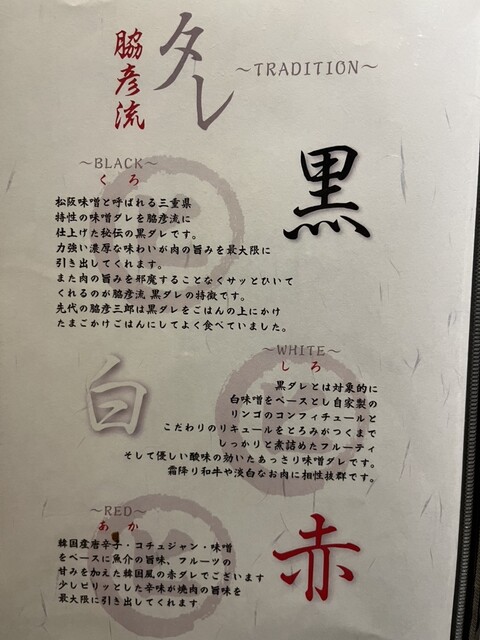 脇彦流
タレ
～TRADITION～
～BLACK～
くろ
黒
松阪味噌と呼ばれる三重県
特性の味噌ダレを脇彦流に
仕上げた秘伝の黒ダレです。
力強い濃厚な味わいが肉の旨みを最大限に
引き出してくれます。
また肉の旨みを邪魔することなくサッとひいて
くれるのが脇彦流 黒ダレの特徴です。
先代の脇彦三郎は黒ダレをごはんの上にかけ
たまごかけごはんにしてよく食べていました。
～WHITE～
しろ
白
黒ダレとは対象的に
白味噌をベースとし自家製の
リンゴのコンフィチュールと
こだわりのリキュールをとろみがつくまで
しっかりと煮詰めたフルーティ
そして優しい酸味の効いたあっさり味噌ダレです。
霜降り和牛や淡白なお肉に相性抜群です。
～RED～
あか
赤
韓国産唐辛子・コチュジャン・味噌
をベースに魚介の旨味、フルーツの
甘みを加えた韓国風の赤ダレでございます
少しピリッとした辛味が焼肉の旨味を
最大限に引き出してくれます